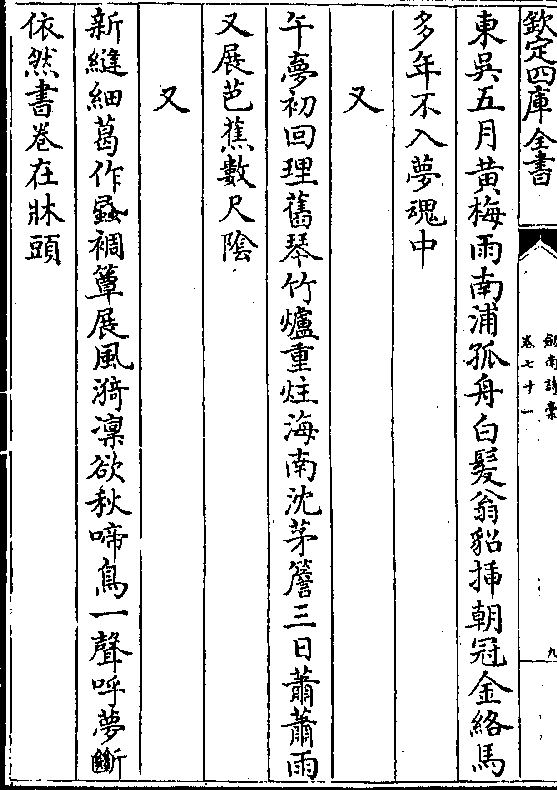 欽定四庫全書
劍南詩藁
卷七十一
九
東吳五月黄梅雨南浦孤舟白髪翁貂插朝冠金絡馬
多年不入夢魂中
又
午夢初回理舊琴竹爐重炷海南沈茅簷三日蕭蕭雨
又展芭蕉數尺陰
又
新縫細葛作蚤裯簟展風漪凛欲秋啼鳥一聲呼夢斷
依然書卷在牀頭